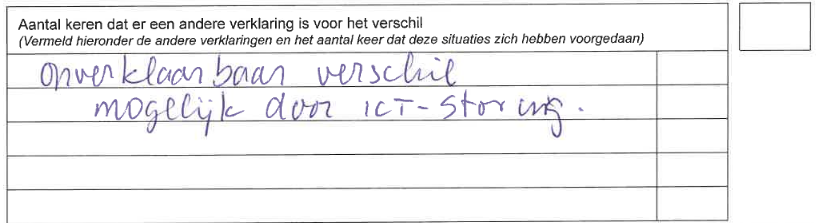 Aantal keren dat er een andere verklaring is voor het verschil
(Vermeld hieronder de andere verklaringen en het aantal keer dat deze situaties zich hebben voorgedaan)
onverklaarbaar verschil
mogelijk door ICT-storing.